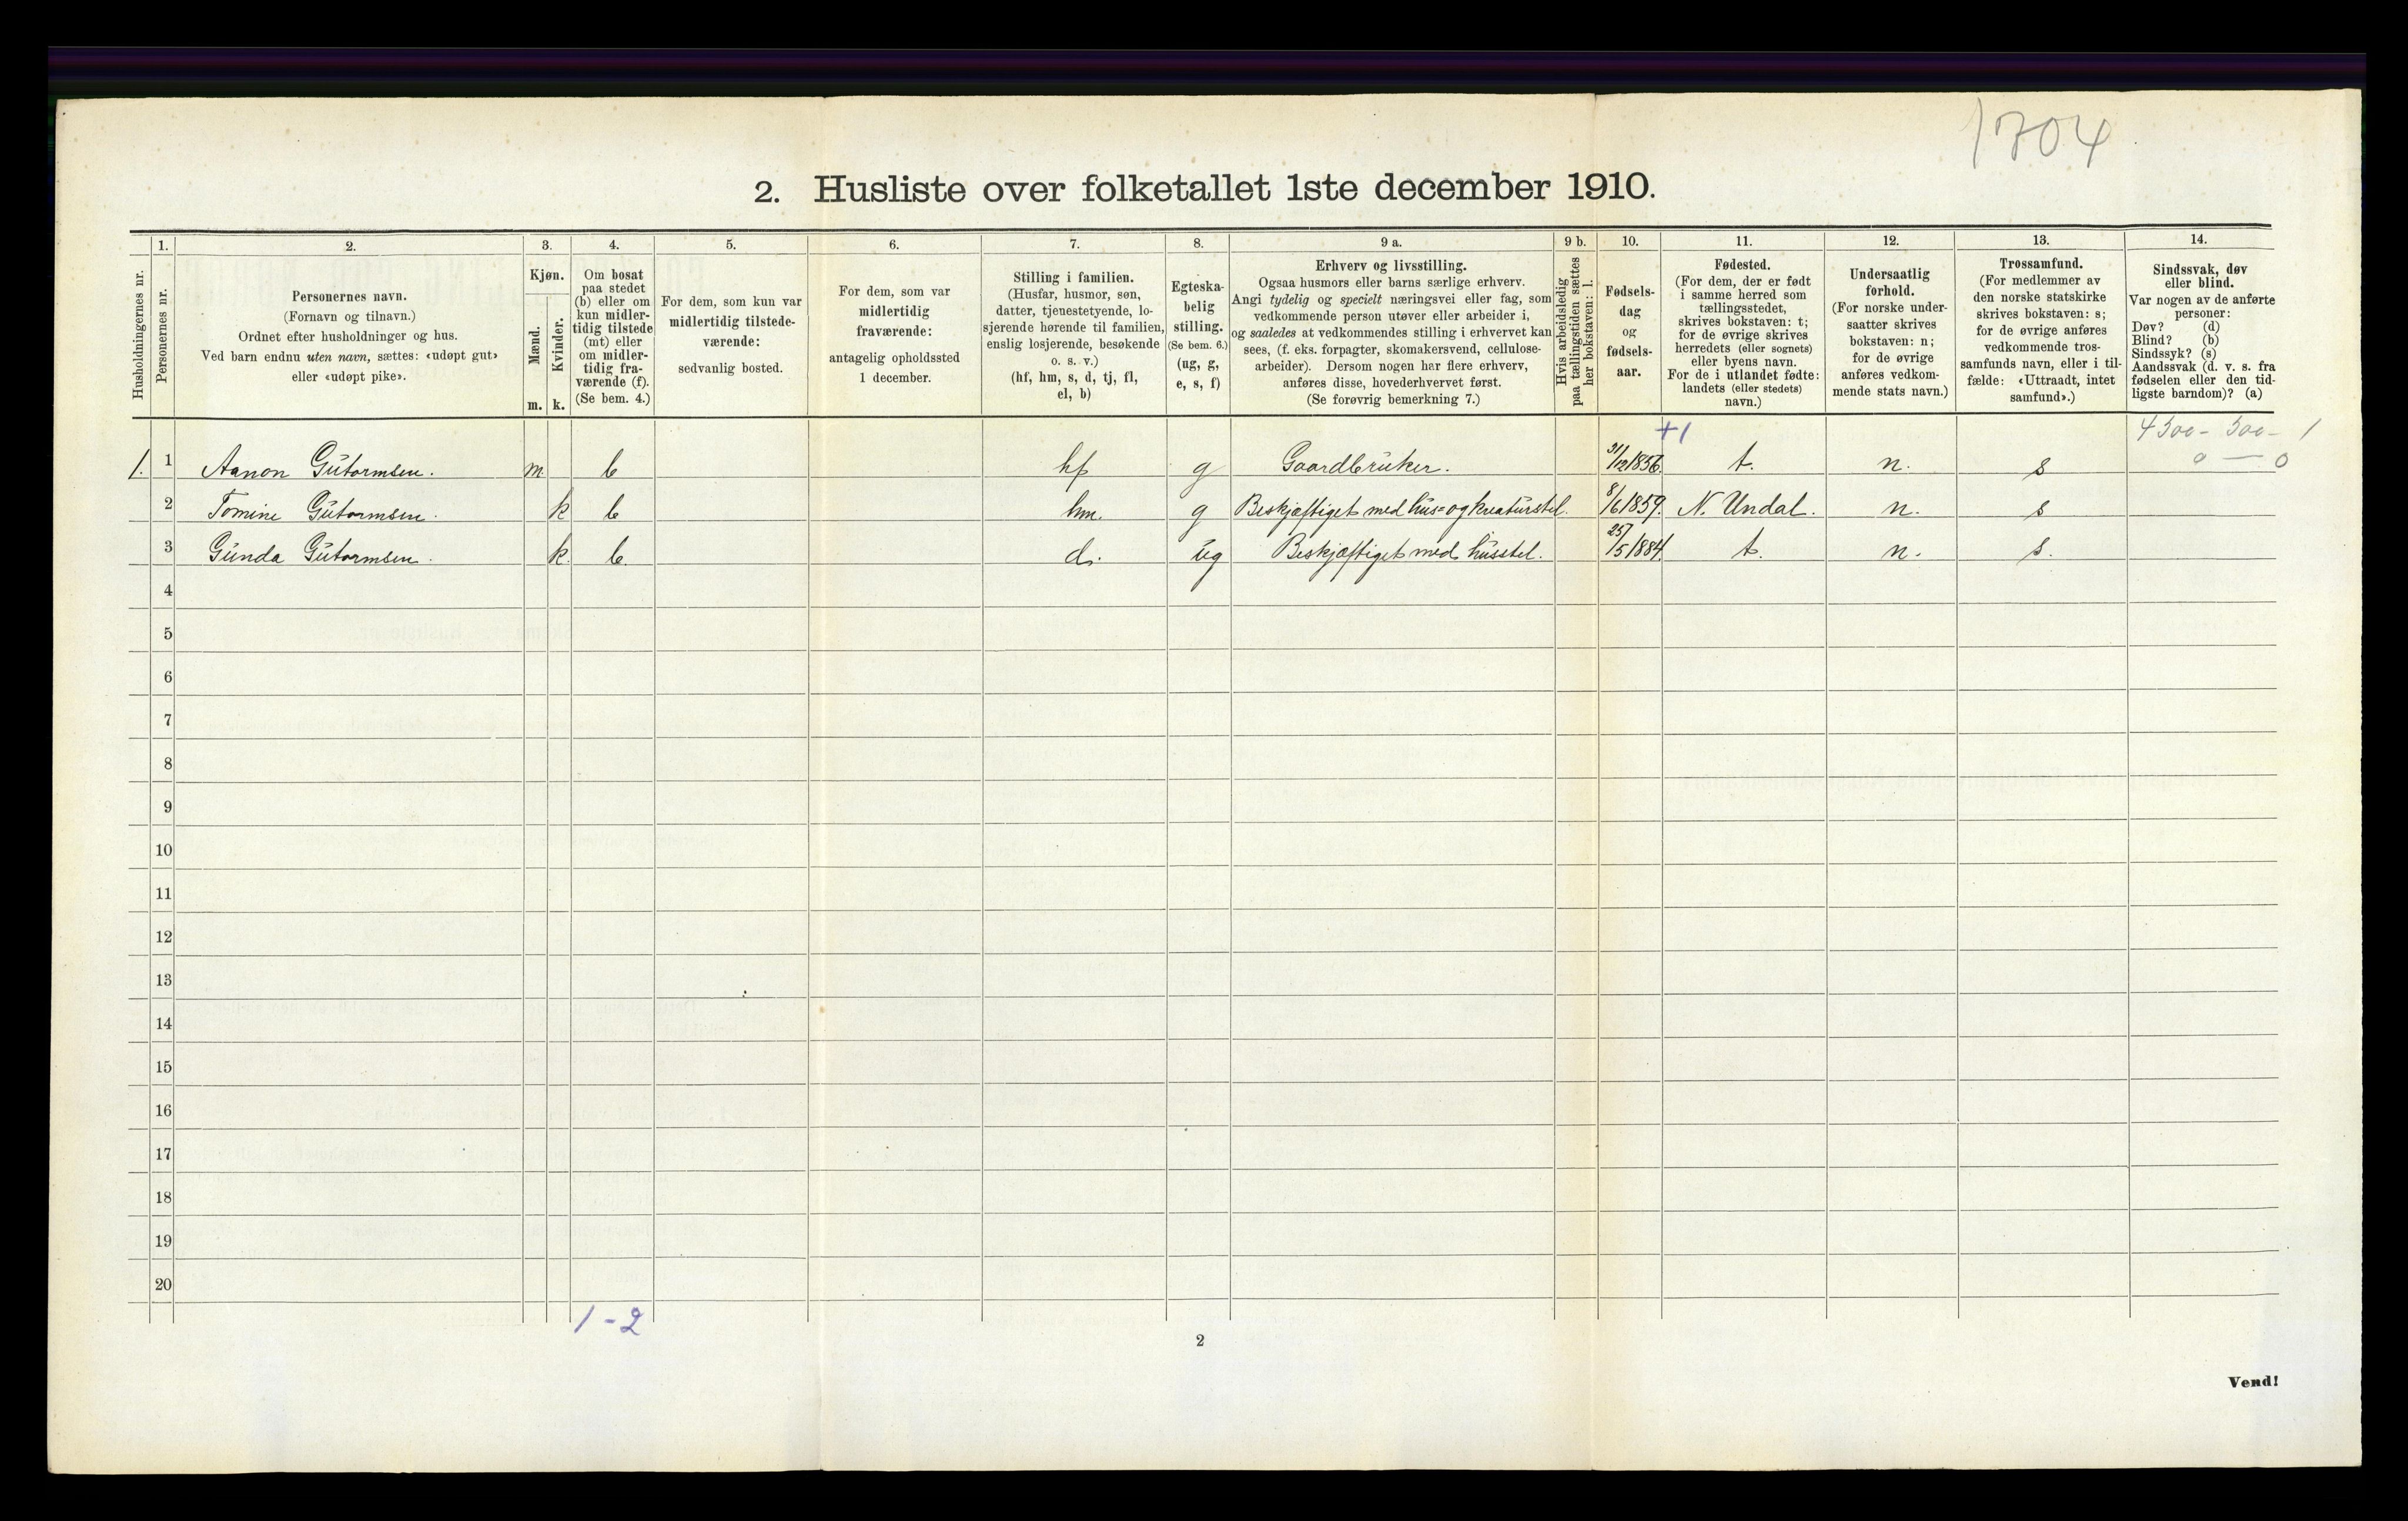 1704
2. Husliste over folketallet 1ste december 1910.
Husholdningernes nr.
1.
Personernes nr.
2.
Personernes navn.
(Fornavn og tilnavn.)
Ordnet efter husholdninger og hus.
Ved barn endnu uten navn, sættes: «udøpt gut»
eller «udøpt pike».
3.
Kjøn.
Mænd.
Kvinder.
m. k.
4.
Om bosat
paa stedet
(b) eller om
kun midler-
tidig tilstede
(mt) eller
om midler-
tidig fra-
værende (f).
(Se bem. 4.)
5.
For dem, som kun var
midlertidig tilstede-
værende:
sedvanlig bosted.
6.
For dem, som var
midlertidig
fraværende:
antagelig opholdssted
1 december.
7.
Stilling i familien.
(Husfar, husmor, søn,
datter, tjenestetyende, lo-
sjerende hørende til familien,
enslig losjerende, besøkende
o. s. v.)
(hf, hm, s, d, tj, fl,
el, b)
8.
Egteska-
belig
stilling.
(Se bem. 6.)
(ug, g,
e, s, f)
9 a.
Erhverv og livsstilling.
Ogsaa husmors eller barns særlige erhverv.
Angi tydelig og specielt næringsvei eller fag, som
vedkommende person utøver eller arbeider i,
og saaledes at vedkommendes stilling i erhvervet kan
sees, (f. eks. forpagter, skomakersvend, cellulose-
arbeider). Dersom nogen har flere erhverv,
anføres disse, hovederhvervet først.
(Se forøvrig bemerkning 7.)
9 b.
Hvis arbeidsledig
paa tællingstiden sættes
her bokstaven: l.
10.
Fødsels-
dag
og
fødsels-
aar.
11.
Fødested.
(For dem, der er født
i samme herred som
tællingsstedet,
skrives bokstaven: t;
for de øvrige skrives
herredets (eller sognets)
eller byens navn.
For de i utlandet fødte:
landets (eller stedets)
navn.)
12.
Undersaatlig
forhold.
(For norske under-
saatter skrives
bokstaven: n;
for de øvrige
anføres vedkom-
mende stats navn.)
13.
Trossamfund.
(For medlemmer av
den norske statskirke
skrives bokstaven: s;
for de øvrige anføres
vedkommende tros-
samfunds navn, eller i til-
fælde: «Uttraadt, intet
samfund».)
14.
Sindssvak, døv
eller blind.
Var nogen av de anførte
personer:
Døv? (d)
Blind? (b)
Sindssyk? (s)
Aandssvak (d. v. s. fra
fødselen eller den tid-
ligste barndom)? (a)
+1
4300 - 300 - 1
0 — 0
1. 1 Aanon Gutormsen. m. b hf g Gaardbruker. 31/12 1856. t. n. s
2 Tomine Gutormsen. k b hm. g Beskjæftiget med hus= og kreaturstel. 8/6 1859. N. Undal. n. s
3 Gunda Gutormsen. k. b. d. ug Beskjæftiget med husstel. 25/5 1884. t. n. s.
4
5
6
7
8
9
10
11
12
13
14
15
16
17
18
19
20
1 - 2
2
Vend!